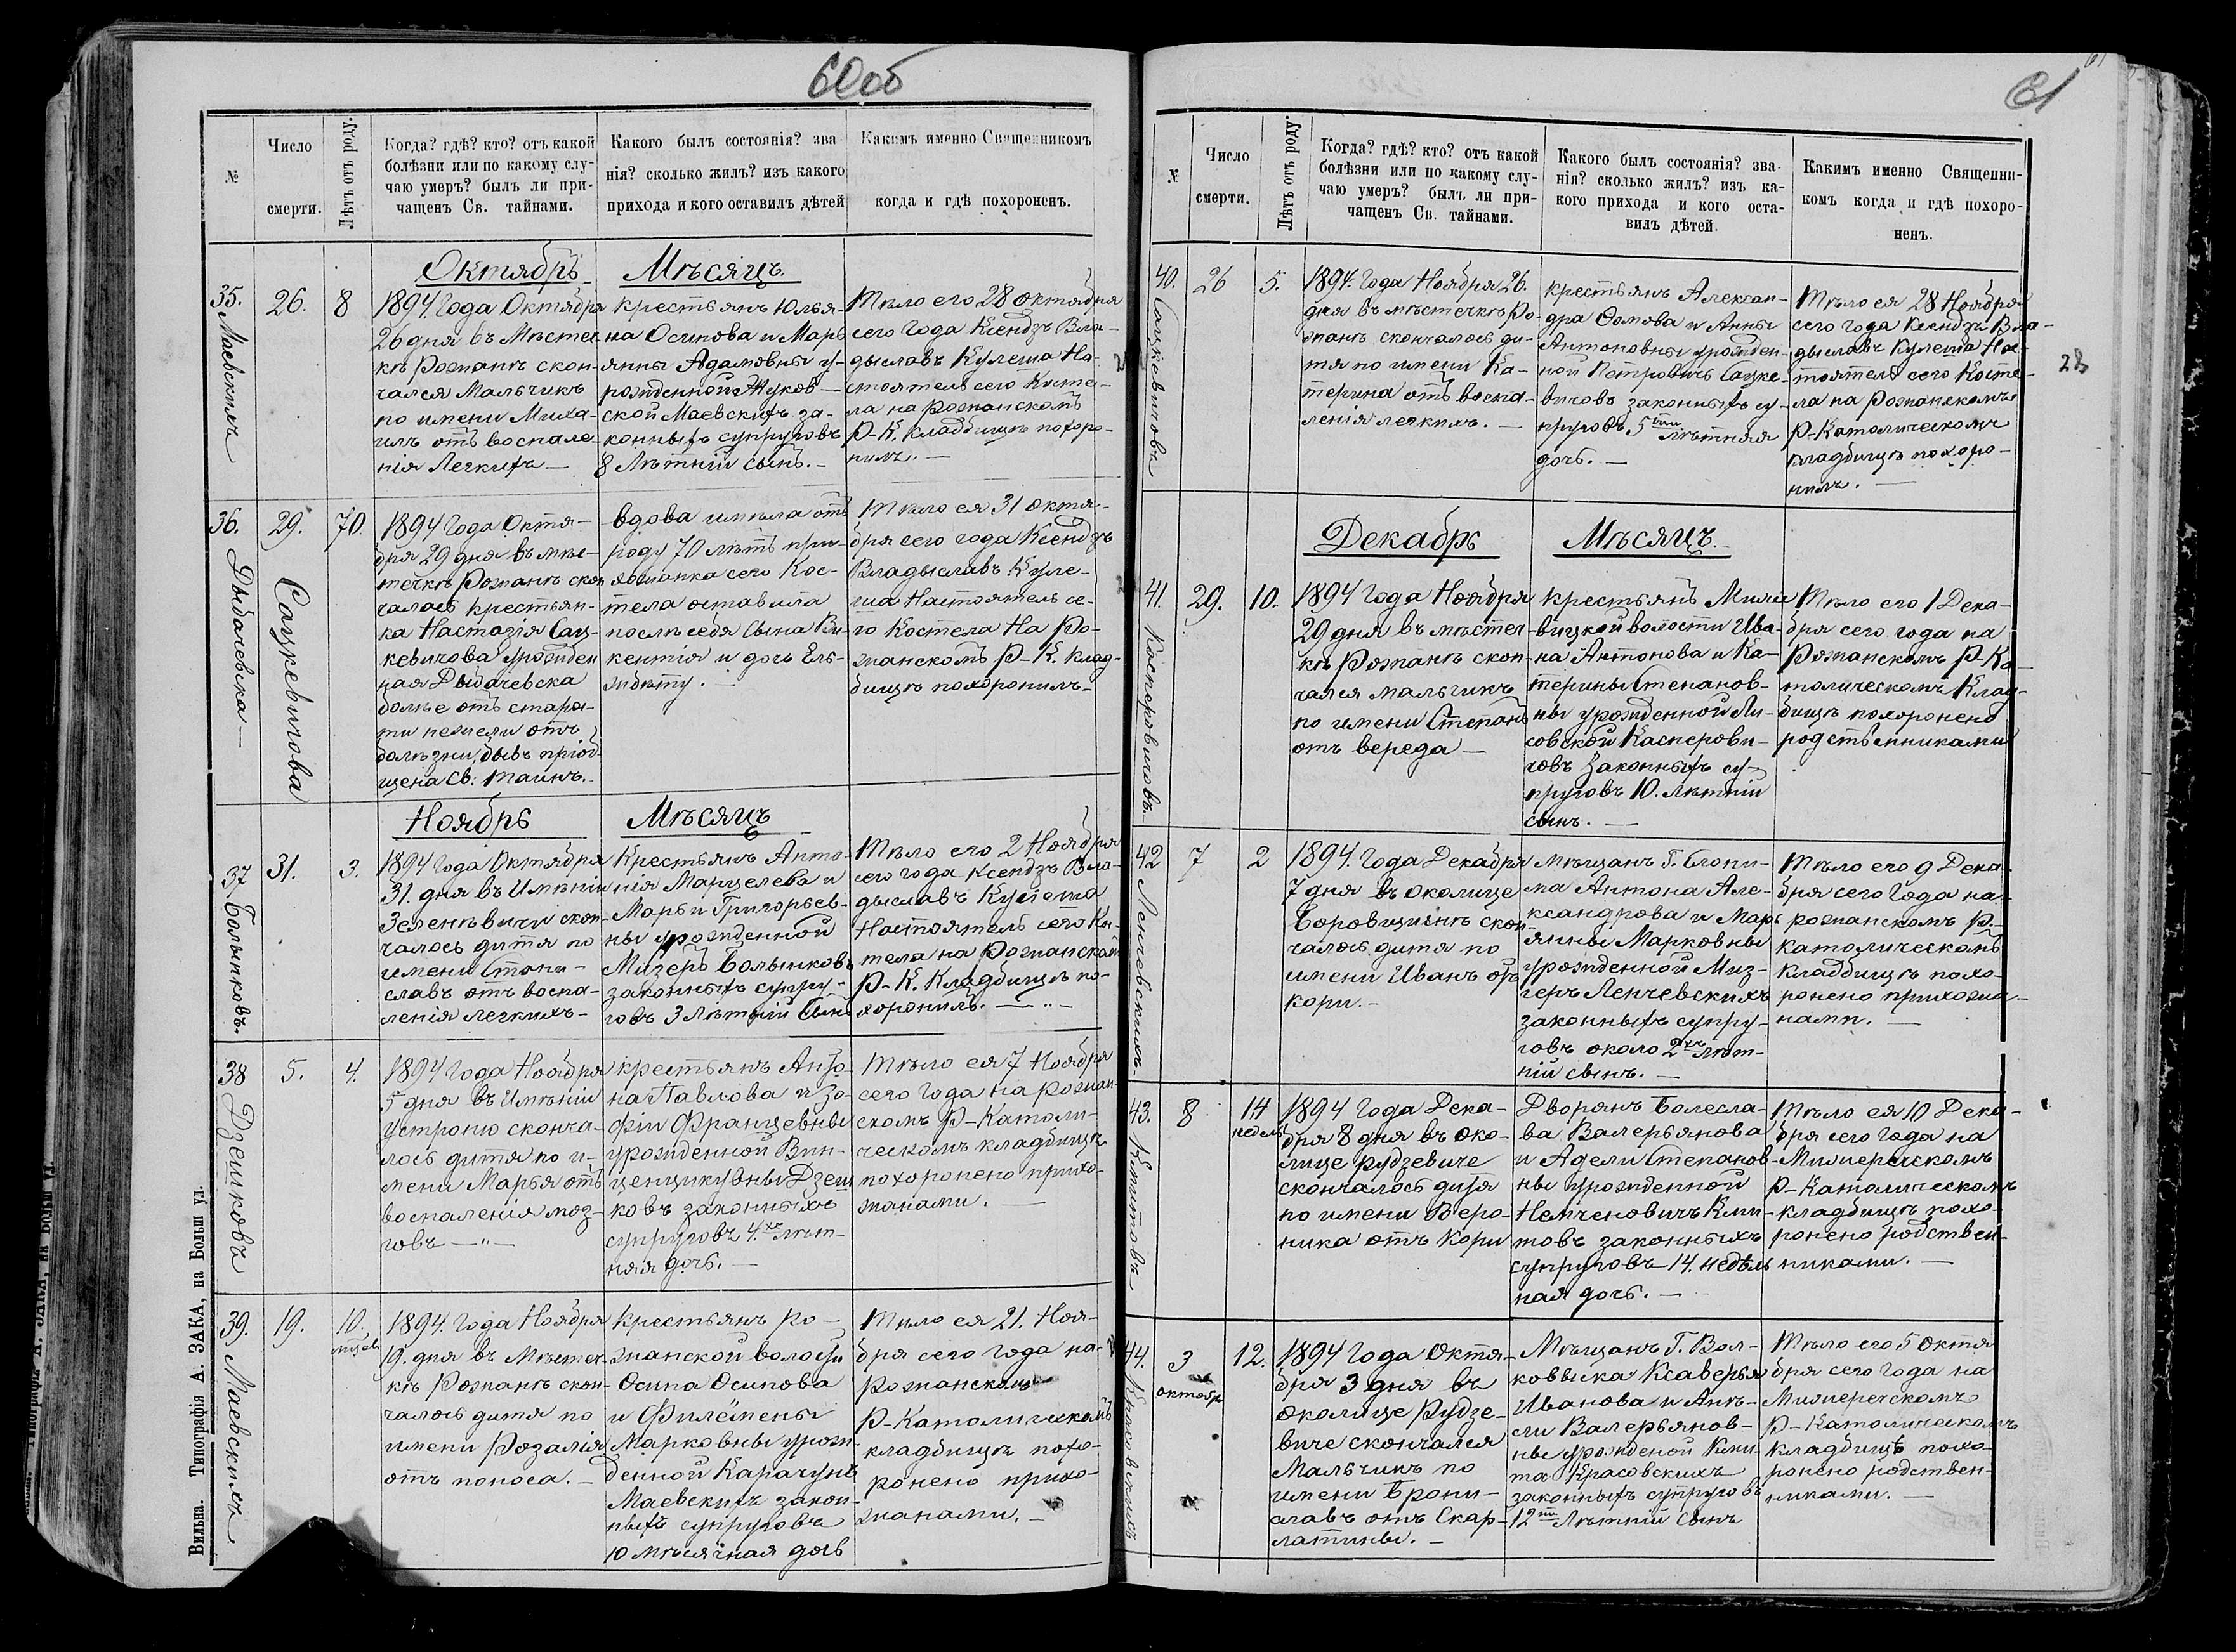 60об
№
Число
смерти.
Лѣтъ отъ роду.
Когда? гдѣ? кто? отъ какой
болѣзни или по какому слу-
чаю умеръ? былъ ли при-
чащенъ Св. тайнами.
Какого былъ состоянія? зва
нія? сколько жилъ? изъ какого
прихода и кого оставилъ дѣтей
Какимъ именно Священникомъ
когда и гдѣ похороненъ.
Октябрь Мѣсяцъ
35.
26.
8
1894 Года Октября
26 дня въ Мѣстеч
кѣ Рожанѣ скон-
чался Мальчикъ
по имени Миха-
илъ отъ воспале-
нія Легкихъ —
крестьянъ Юлья-
на Осипова и Марь
янны Адамовны у-
рожденной Жуков-
ской Маевскихъ за-
конныхъ супруговъ
8 Лѣтній сынъ. –
Тѣло его 28 октября
сего года Ксендзъ Вла-
дыславъ Кулеша На-
стоятель сего Косте-
ла на Рожанскомъ
Р-К. Кладбищѣ похоро-
нилъ. —
36.
Дыбачевска —
29.
Сацкевичова
70.
1894 Года Октя-
бря 29 дня въ мѣс-
течкѣ Рожанѣ скон
чалась крестьян-
ка Настазія Сац-
кевичова урожден
ная Дыбачевска
болѣе отъ старос-
ти нежели отъ
болѣзни, бывъ пріоб-
щена Св. Таинъ. –
вдова имѣла отъ
роду 70 лѣтъ при-
хожанка сего Кос-
тела оставила
послѣ себя Сына Ви-
кентія и дочь Ель-
жбѣту. –
Тѣло ея 31 октя-
бря сего года Ксендзъ
Владыславъ Куле-
ша Настоятель се-
го Костела На Ро-
жанскомъ Р-К. клад-
бищѣ похоронилъ –
Ноябрь Мѣсяцъ
37.
Болынковъ.
31.
3.
1894 Года Октября
31. дня въ Имѣніи
Зеленѣвичи скон-
чалось дитя по
имени Стани-
славъ отъ воспа-
ленія легкихъ –
Крестьянъ Анто-
нія Марцелева и
Марьи Григорьев-
ны урожденной
Мизеръ Болынковъ
законныхъ супру-
говъ 3 Лѣтній Сынъ
Тѣло его 2 Ноября
сего года Ксендзъ Вла-
дыславъ Кулеша
Настоятель сего Кос-
тела на Рожанскомъ
Р-К. Кладбищѣ по-
хоронилъ. —
38
Дзешковъ
5.
4.
1894 Года Ноября
5 дня въ Имѣніи
Устроню сконча-
лось дитя по и-
мени Марья отъ
воспаленія моз-
говъ —
крестьянъ Анто-
на Павлова и Зо-
фіи Францевны
урожденной Вин-
Дзеш
ковъ законныхъ
супруговъ 4хъ лѣт-
няя дочь. —
Тѣло ея 7 Ноября
сего Года на рожан-
скомъ Р-Католи-
ческомъ кладбищѣ
похоронено прихо-
жанами. —
39.
Маевскихъ
19.
10.
1894. Года Ноября
19. дня въ Мѣстеч-
кѣ Рожанѣ скон-
чалось дитя по
имени Розалія
отъ поноса. –
крестьянъ Ро-
жанской волости
Осипа Осипова
и Филёмены
Марковны урож-
денной Карачунъ
Маевскихъ закон-
ныхъ супруговъ
10 мѣсячная дочь
Тѣло ея 21. Ноя-
бря сего года на
Рожанскомъ
Р-Католическомъ
кладбищѣ похо-
ронено прихо-
жанами. –
Вильна. Типографія А. ЗАКА, на Больш ул.
61
№
Число
смерти.
Лѣтъ отъ роду.
Когда? гдѣ? кто? отъ какой
болѣзни или по какому слу-
чаю умеръ? былъ ли при-
чащенъ Св. тайнами.
Какого былъ состоянія? зва-
нія? сколько жилъ? изъ ка-
кого прихода и кого оста-
вилъ дѣтей.
Какимъ именно Священни-
комъ когда и гдѣ похоро-
ненъ.
40.
Сацкевичовъ
26
5.
1894. Года Ноября 26.
дня въ мѣстечкѣ Ро-
жанѣ скончалось ди-
тя по имени Ка-
терина отъ воспа-
ленія легкихъ. –
крестьянъ Алексан-
дра Фомова и Анны
Антоновны урожден-
ной Петровичъ Сацке-
вичовъ законныхъ су-
пруговъ 5ти лѣтняя
дочь. —
Тѣло ея 28 Ноября
сего года Ксендзъ Вла-
дыславъ Кулеша Нас-
тоятель сего Косте-
ла на Рожанскомъ
Р-Католическомъ
кладбищѣ похоро-
нилъ. —
28
Декабрь Мѣсяцъ.
41.
Касперовичовъ.
29.
10.
1894 Года Ноября
29 дня въ мѣстеч-
кѣ Рожанѣ скон-
чался мальчикъ
по имени Степанъ
отъ вереда —
крестьянъ Мили
вицкой волости Ива-
на Антонова и Ка-
терины Степанов-
ны урожденной Ли-
совской Касперови-
човъ Законныхъ су-
пруговъ 10. Лѣтній
сынъ. —
Тѣло его 1 Дека-
бря сего года на
Рожанскомъ Р-Ка-
толическомъ Клад-
бищѣ похоронено
родственниками
42
Ленчевскихъ
7
2
1894. Года Декабря
7 дня въ околице
Боровщинѣ скон-
чалось дитя по
имени Иванъ отъ
кори. –
мѣщанъ Г. Слони-
ма Антона Але-
ксандрова и Марь
янны Марковны
урожденной Миз-
геръ Ленчевскихъ
законныхъ супру-
говъ около 2хъ лѣт-
ній сынъ. –
Тѣло его 9 Дека-
бря сего Года на
рожанскомъ Р.-
католическомъ
кладбищѣ похо-
ронено прихожа-
нами. —
43.
Кмитовъ
8
14
недѣль
1894 Года Дека-
бря 8 дня въ око-
лице рудзевиче
скончалось дитя
по имени Веро-
ника отъ Кори
Дворянъ Болесла-
ва Валерьянова
и Адели Степанов-
ны урожденной
Немченовичъ Кми-
товъ законныхъ
супруговъ 14. недѣль
ная дочь. –
Тѣло ея 10 Дека-
бря сего года на
Р-Католическомъ
кладбищѣ похо-
ронено родствен-
никами. —
44.
Красовскихъ
3
октябр
12.
1894 Года Октя-
бря 3 дня въ
околице Рудзе-
виче скончался
Мальчикъ по
имени Брони-
славъ отъ Скар-
латины. –
Мѣщанъ Г. Вол-
ковыска Ксаверья
Иванова и Анѣ-
ли Валерьянов-
ны урожденой Кми-
та Красовскихъ
законныхъ супруговъ
12ти Лѣтній сынъ
Тѣло его 5 Октя
бря сего года на
Р-Католическомъ
кладбищѣ похо-
ронено родствен-
никами. –